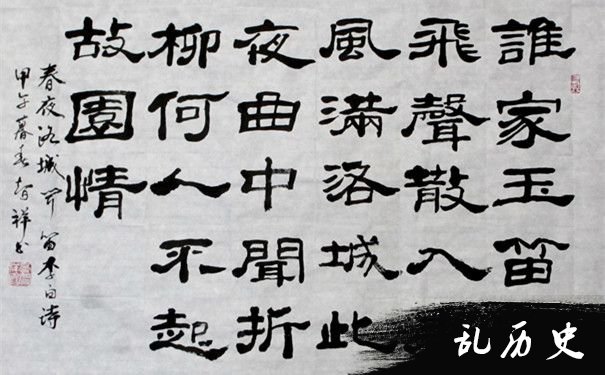 誰家玉笛
飛聲散入
風滿洛城此
夜曲中聞折
柳何人不起
故園情
春夜洛城闻笛李白诗
甲午暮春智祥书
乱历史